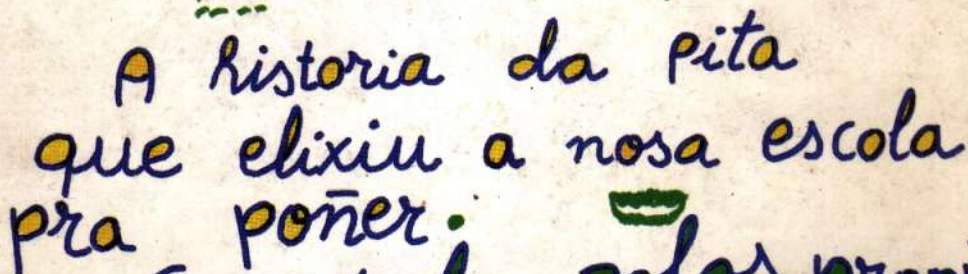 A historia da pita
que elixiu a nosa escola
pra poñer.